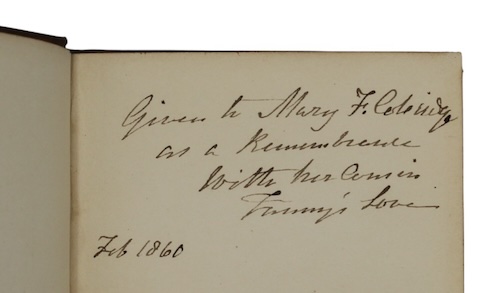 Given to Mary F. Coleridge
as a Remembrance
With her Cousin
Fanny's Love
Feb 1860